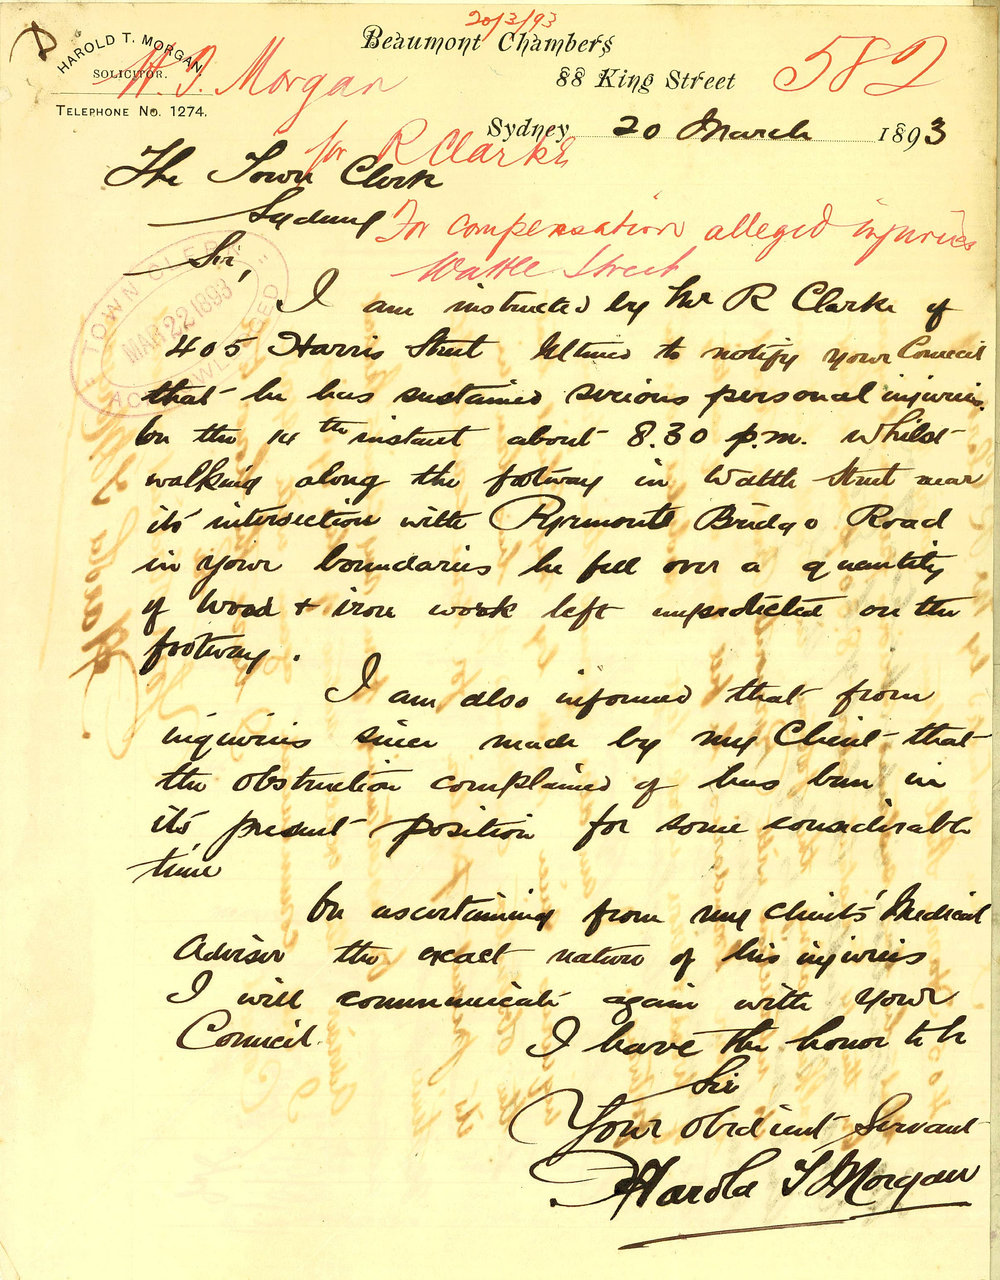 20/3/93
HAROLD T. MORGAN,
SOLICITOR.
TELEPHONE NO. 1274.
Beaumont Chambers
88 King Street
582
H. T. Morgan
for R Clarke
Sydney 20 March 1893
The Town Clerk
Sydney
For compensation alleged injuries
Wattle Street
Sir,
TOWN CLERK
MAR 22 1893
ACKNOWLEDGED
I am instructed by Mr R Clarke of
405 Harris Street Ultimo to notify your Council
that he has sustained serious personal injuries.
On the 14th instant about 8.30 p.m. whilst
walking along the footway in Wattle Street near
its' intersection with Pyrmont Bridge Road
in your boundaries he fell over a quantity
of wood & iron work left unprotected on the
footway.
I am also informed that from
inquiries since made by my Client that
the obstruction complained of has been in
it's present position for some considerable
time
On ascertaining from my clients' Medical
Adviser the exact nature of his injuries
I will communicate again with your
Council.
I have the honor to be
Sir
Your obedient Servant
Harold T Morgan